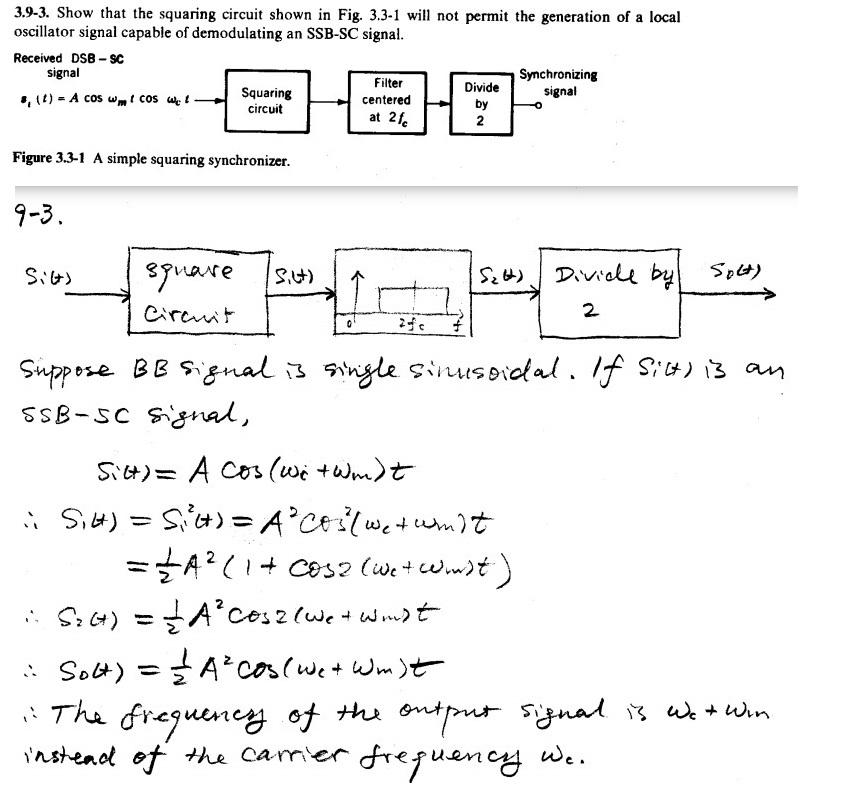 3.9-3. Show that the squaring circuit shown in Fig. 3.3-1 will not permit the generation of a local
oscillator signal capable of demodulating an SSB-SC signal.
Received DSB – SC
signal
sᵢ (t) = A cos ωₘ t cos ω_c t
Squaring
circuit
Filter
centered
at 2f_c
Divide
by
2
Synchronizing
signal
Figure 3.3-1 A simple squaring synchronizer.
9-3.
Si(t)
square
circuit
S₁(t)
0
2fc
f
S₂(t)
Divide by
2
S₀(t)
Suppose BB signal is single sinusoidal. If Si(t) is an
SSB-SC signal,
Si(t) = A cos(ωc + ωm)t
∴ S₁(t) = Si²(t) = A² cos²(ωc + ωm)t
= ½A² (1 + cos2 (ωc + ωm)t)
∴ S₂(t) = ½A² cos2(ωc + ωm)t
∴ S₀(t) = ½A² cos(ωc + ωm)t
∴ The frequency of the output signal is ωc + ωm
instead of the carrier frequency ωc.